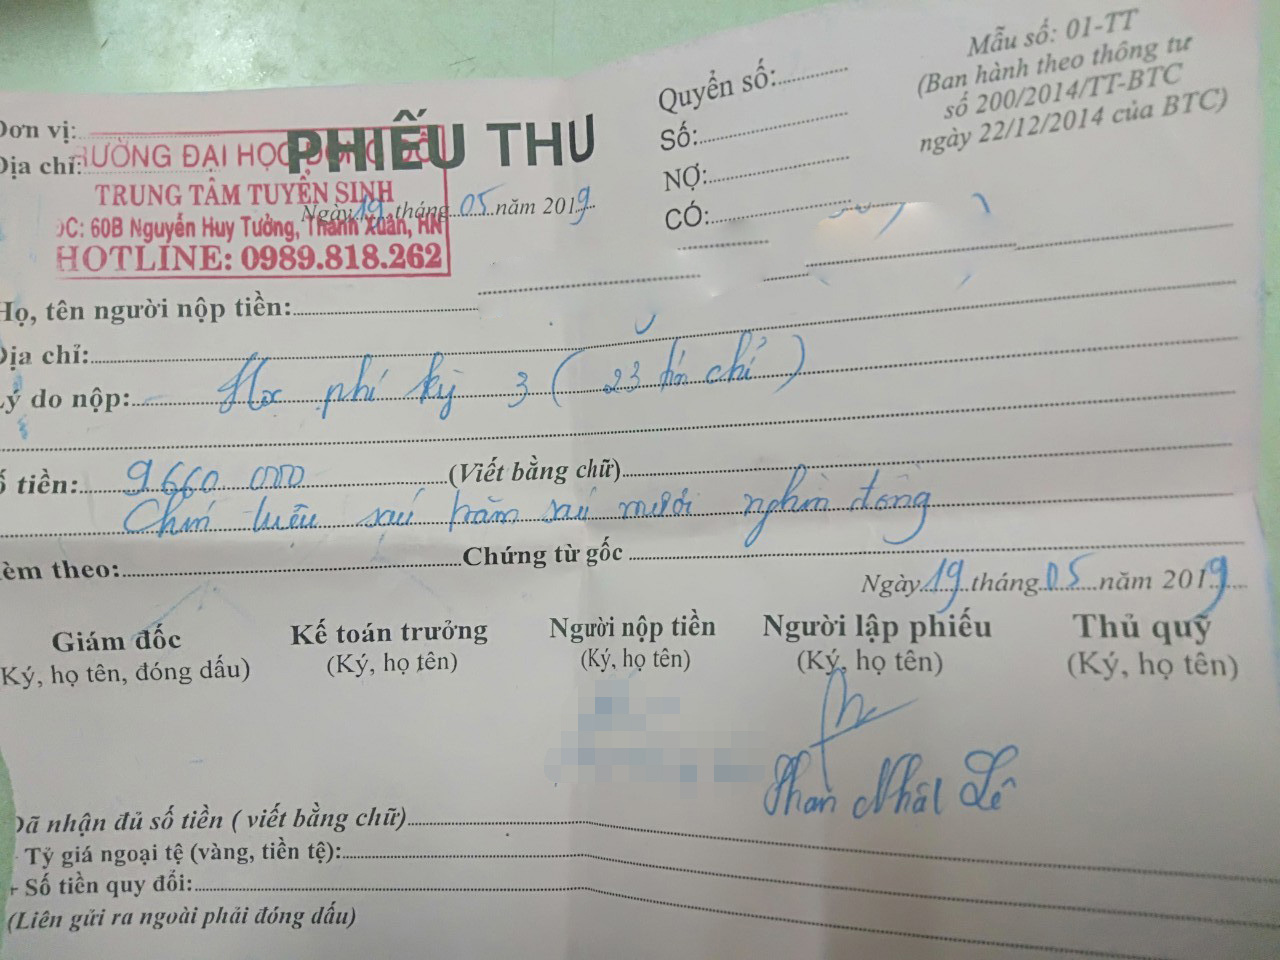 Mẫu số: 01-TT
(Ban hành theo thông tư
số 200/2014/TT-BTC
ngày 22/12/2014 của BTC)
Quyển số:
Số:
NỢ:
CÓ:
Đơn vị:
Địa chỉ:
PHIẾU THU
TRƯỜNG ĐẠI HỌC ĐÔNG ĐÔ
TRUNG TÂM TUYỂN SINH
ĐC: 60B Nguyễn Huy Tưởng, Thanh Xuân, HN
HOTLINE: 0989.818.262
Ngày 19 tháng 05 năm 2019
Họ, tên người nộp tiền:
Địa chỉ:
Lý do nộp: Học phí kỳ 3 ( 23 tín chỉ )
Số tiền: 9660 000 (Viết bằng chữ)
Chín triệu sáu trăm sáu mươi nghìn đồng
Kèm theo: Chứng từ gốc
Ngày 19 tháng 05 năm 2019
Giám đốc Kế toán trưởng Người nộp tiền Người lập phiếu Thủ quỹ
(Ký, họ tên, đóng dấu) (Ký, họ tên) (Ký, họ tên) (Ký, họ tên) (Ký, họ tên)
Phan Nhật Lê
Đã nhận đủ số tiền ( viết bằng chữ)
Tỷ giá ngoại tệ (vàng, tiền tệ):
+ Số tiền quy đổi:
(Liên gửi ra ngoài phải đóng dấu)